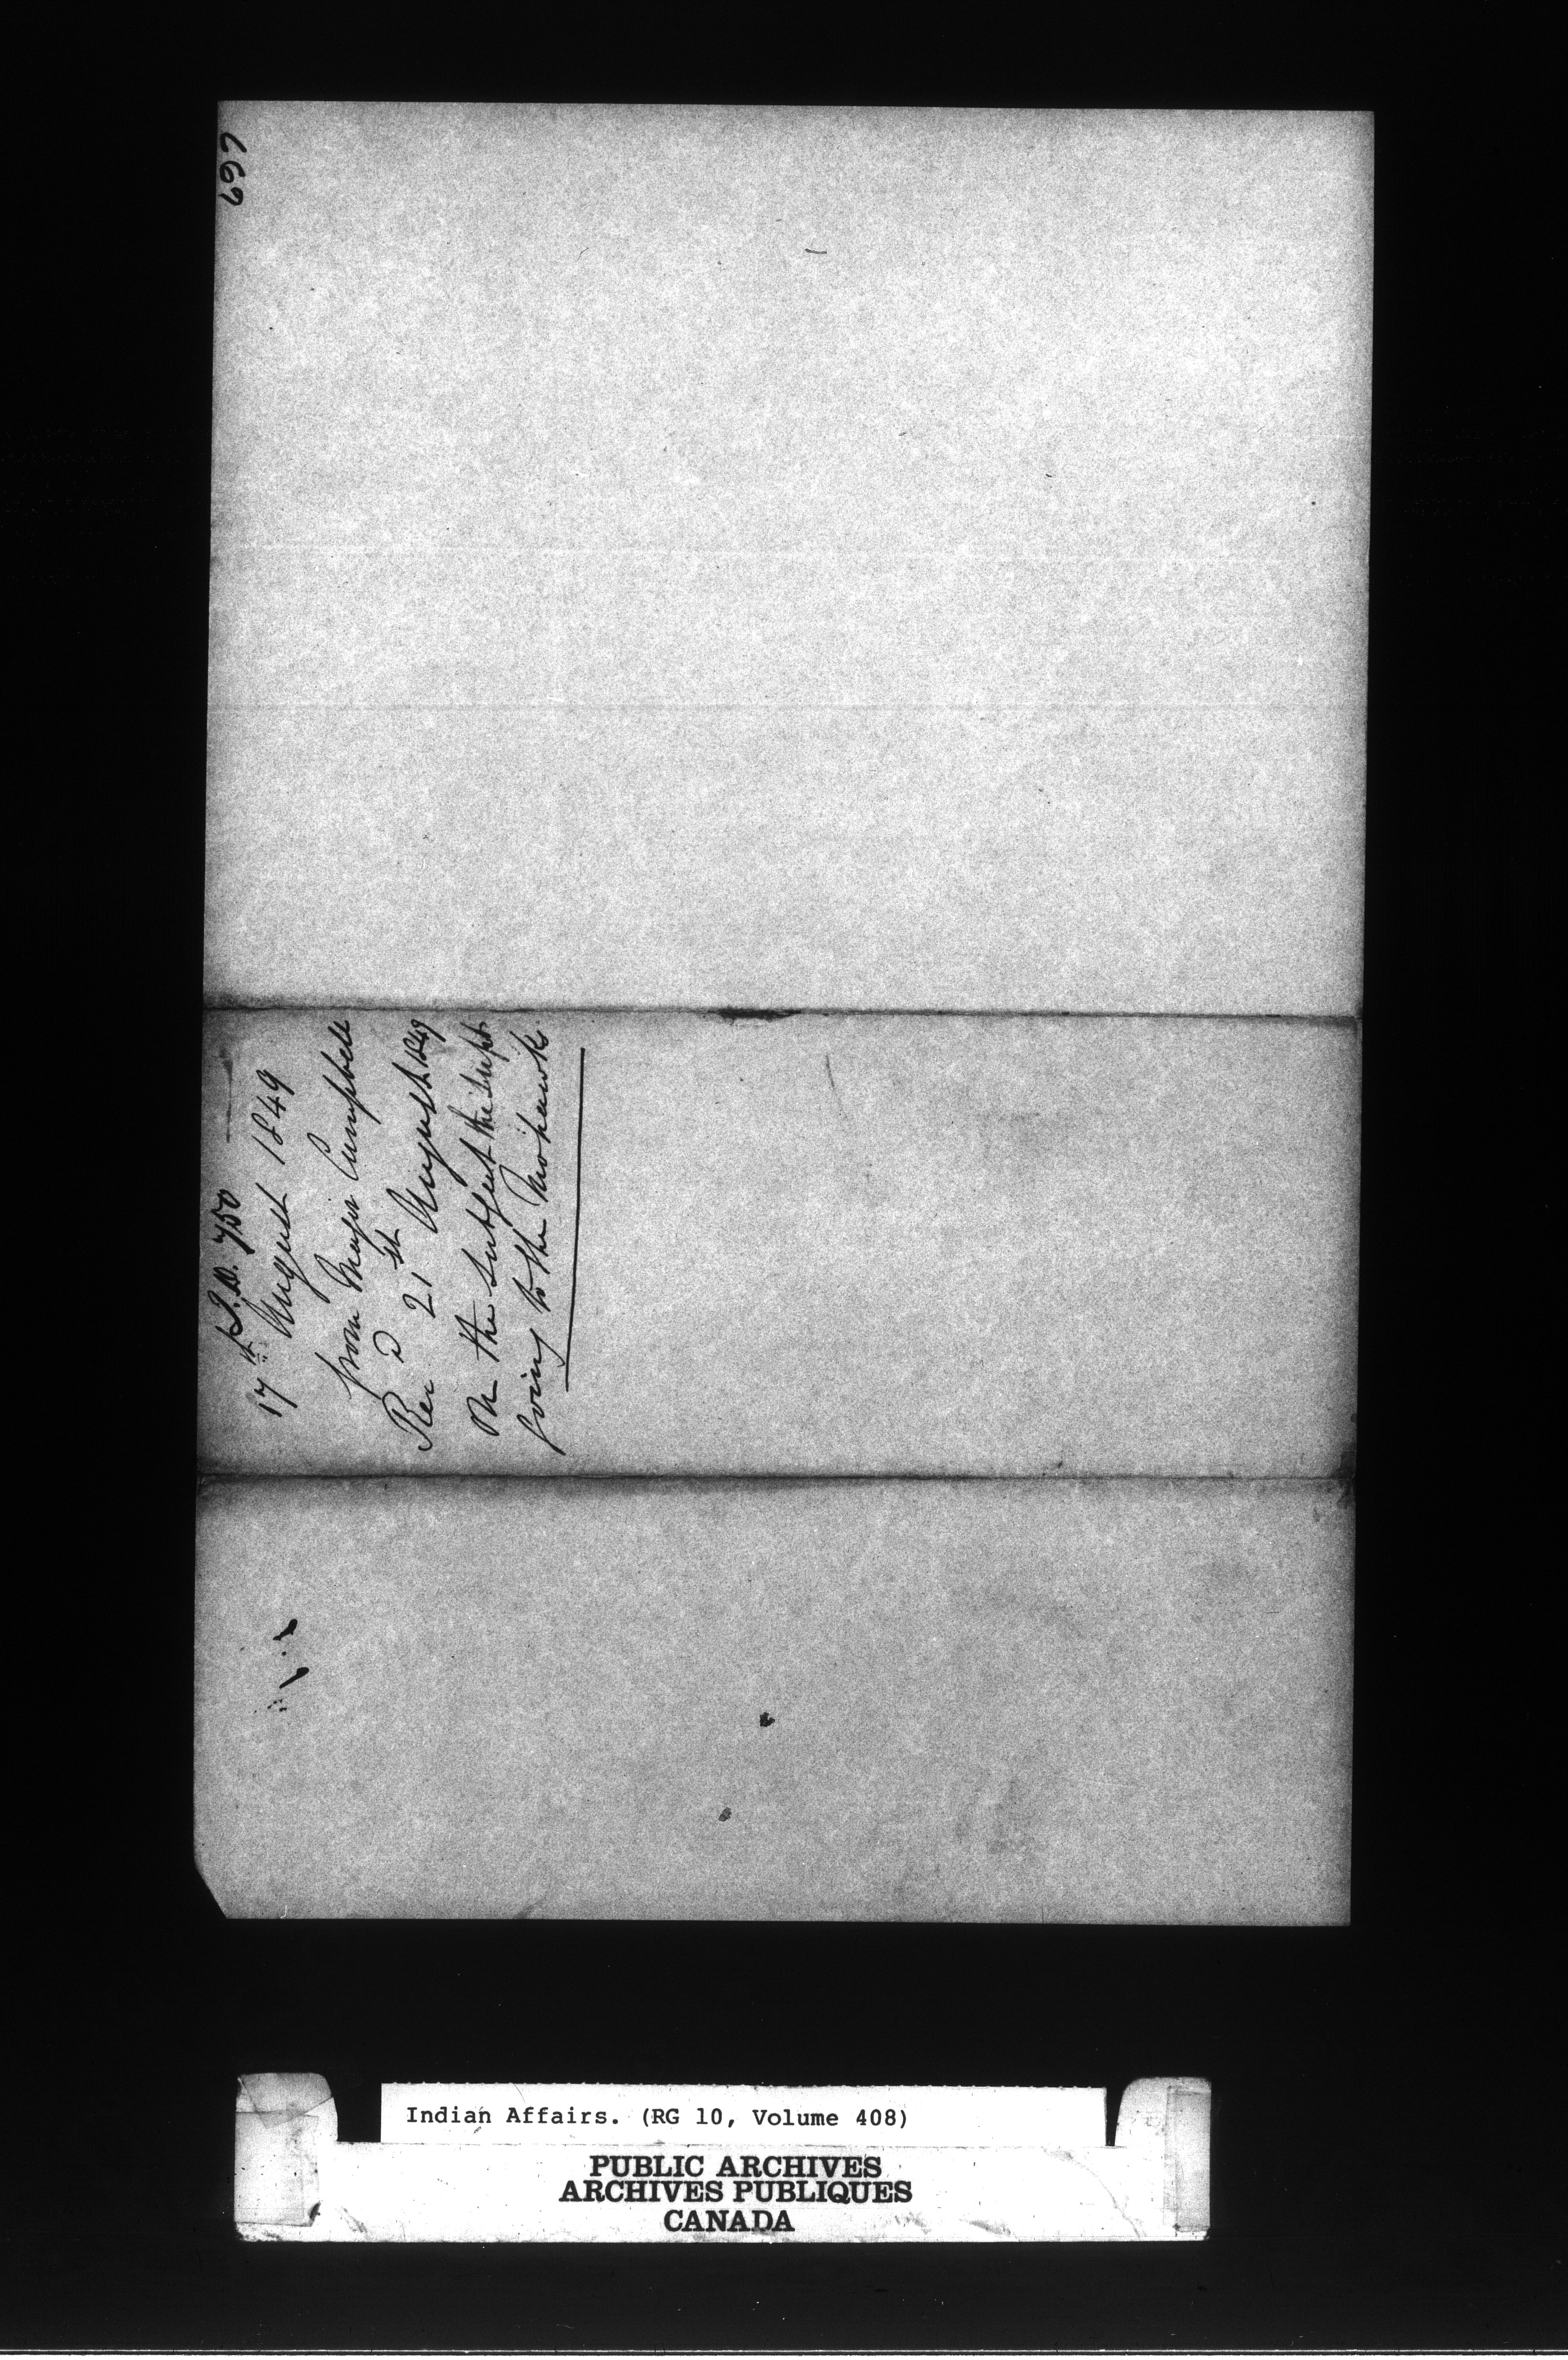 697
S.D. 750
17th August 1849
from Major Campbell
Recd 21st August 1849
On the subject the Supt
going to the Mohawk
Indian Affairs. (RG 10, Volume 408)
PUBLIC ARCHIVES
ARCHIVES PUBLIQUES
CANADA